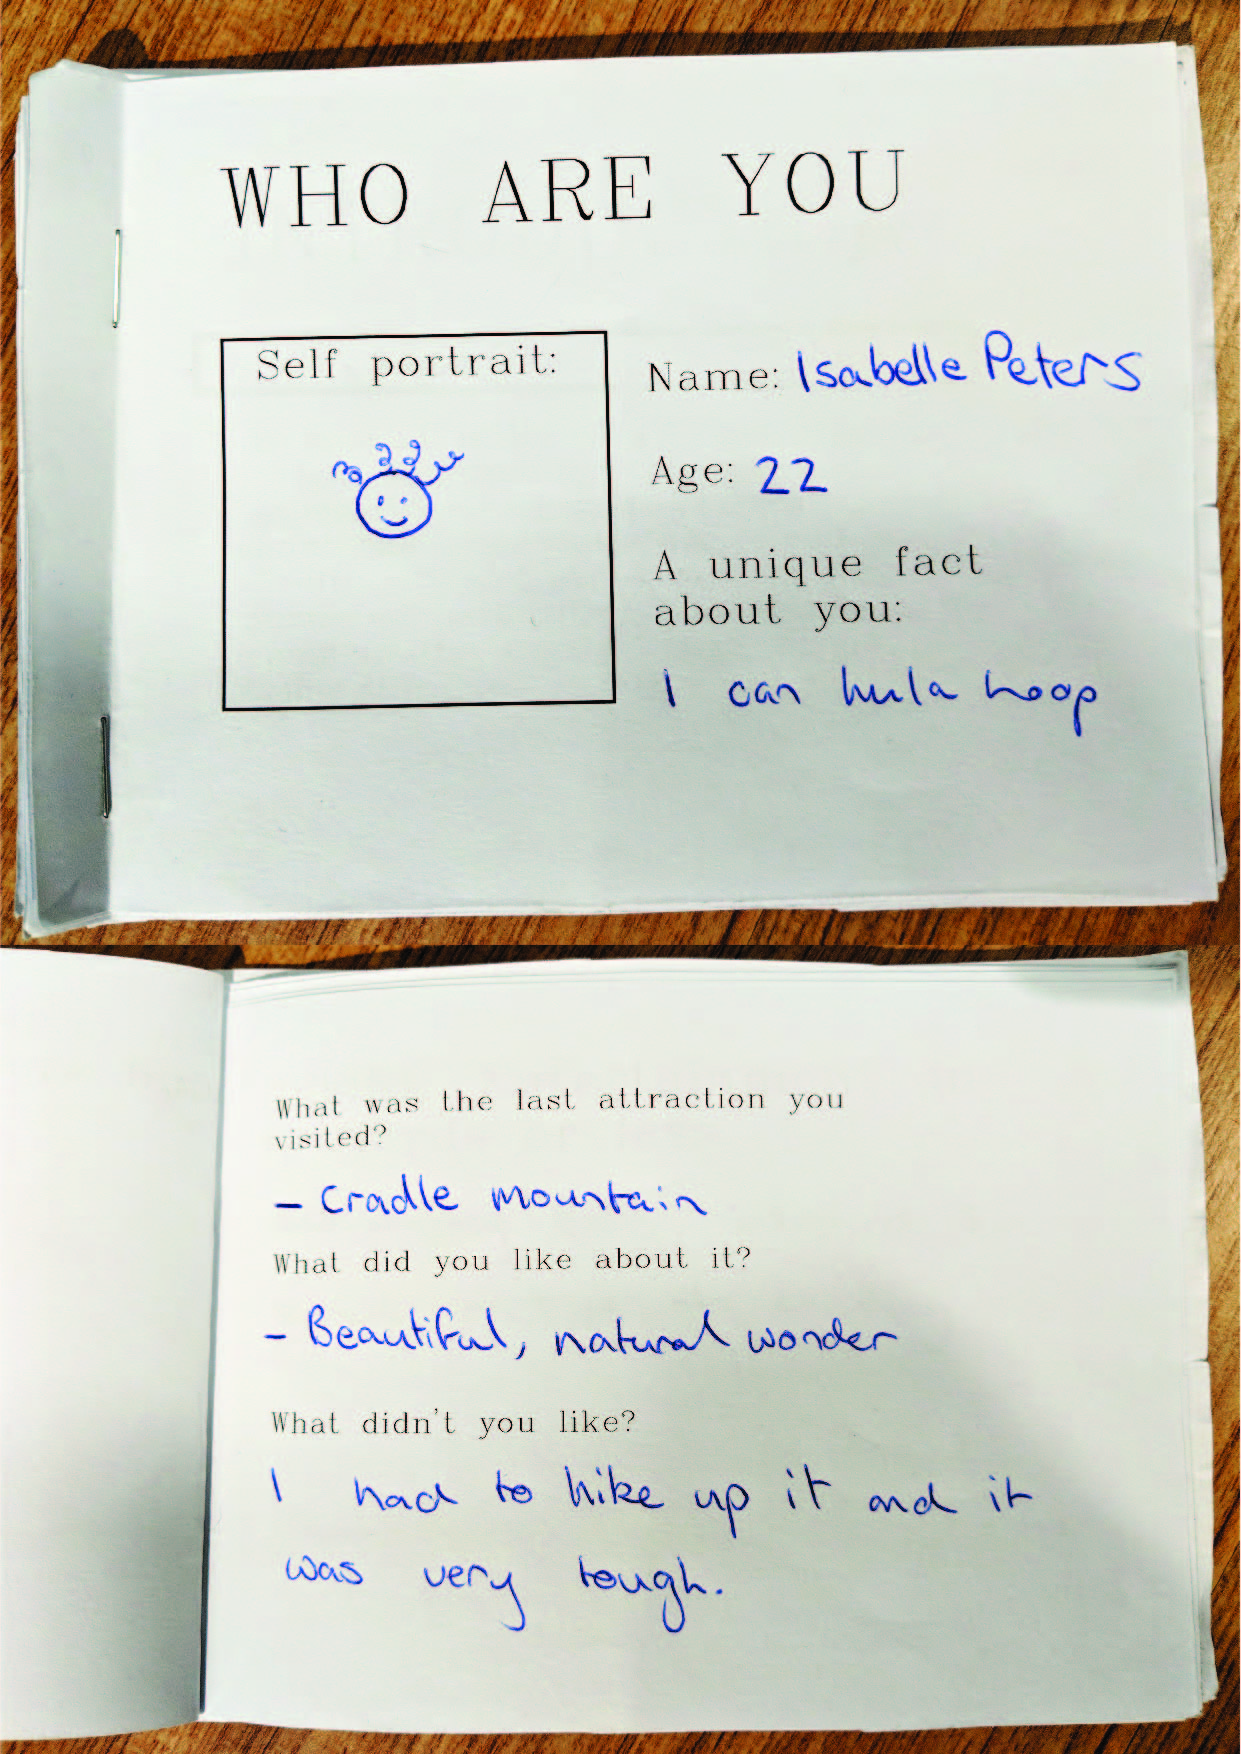 WHO ARE YOU
Self portrait:
Name: Isabelle Peters
Age: 22
A unique fact
about you:
I can hula hoop
What was the last attraction you
visited?
- Cradle mountain
What did you like about it?
- Beautiful, natural wonder
What didn't you like?
I had to hike up it and it
was very tough.